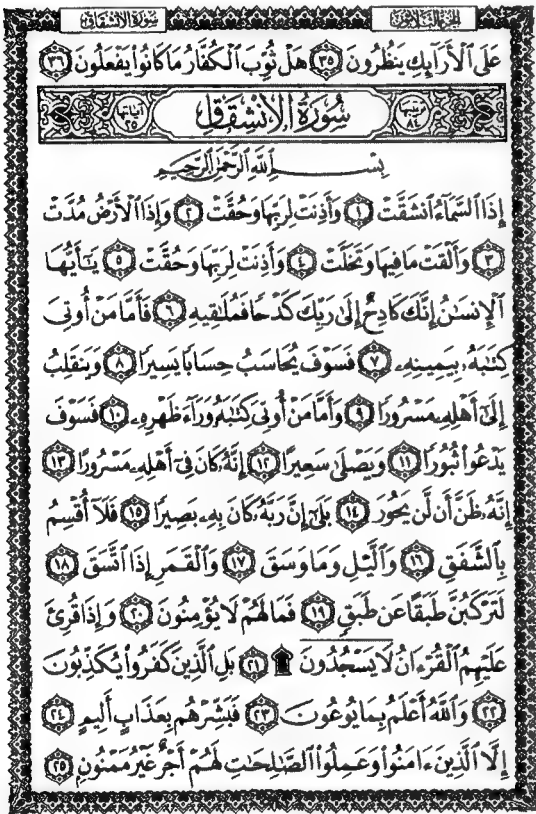 سورة الانشقاق الجزء الثلاثون
عَلَى ٱلْأَرَآئِكِ يَنظُرُونَ ٣٥ هَلْ ثُوِّبَ ٱلْكُفَّارُ مَا كَانُوا۟ يَفْعَلُونَ ٣٦
ترتيبها ٨٤ سُورَةُ الانْشِقَاقِ آياتها ٢٥
بِسْمِ ٱللَّهِ ٱلرَّحْمَٰنِ ٱلرَّحِيمِ
إِذَا ٱلسَّمَآءُ ٱنشَقَّتْ ١ وَأَذِنَتْ لِرَبِّهَا وَحُقَّتْ ٢ وَإِذَا ٱلْأَرْضُ مُدَّتْ
٣ وَأَلْقَتْ مَا فِيهَا وَتَخَلَّتْ ٤ وَأَذِنَتْ لِرَبِّهَا وَحُقَّتْ ٥ يَٰٓأَيُّهَا
ٱلْإِنسَٰنُ إِنَّكَ كَادِحٌ إِلَىٰ رَبِّكَ كَدْحًا فَمُلَٰقِيهِ ٦ فَأَمَّا مَنْ أُوتِىَ
كِتَٰبَهُۥ بِيَمِينِهِۦ ٧ فَسَوْفَ يُحَاسَبُ حِسَابًا يَسِيرًا ٨ وَيَنقَلِبُ
إِلَىٰٓ أَهْلِهِۦ مَسْرُورًا ٩ وَأَمَّا مَنْ أُوتِىَ كِتَٰبَهُۥ وَرَآءَ ظَهْرِهِۦ ١٠ فَسَوْفَ
يَدْعُوا۟ ثُبُورًا ١١ وَيَصْلَىٰ سَعِيرًا ١٢ إِنَّهُۥ كَانَ فِىٓ أَهْلِهِۦ مَسْرُورًا ١٣
إِنَّهُۥ ظَنَّ أَن لَّن يَحُورَ ١٤ بَلَىٰٓ إِنَّ رَبَّهُۥ كَانَ بِهِۦ بَصِيرًا ١٥ فَلَآ أُقْسِمُ
بِٱلشَّفَقِ ١٦ وَٱلَّيْلِ وَمَا وَسَقَ ١٧ وَٱلْقَمَرِ إِذَا ٱتَّسَقَ ١٨
لَتَرْكَبُنَّ طَبَقًا عَن طَبَقٍ ١٩ فَمَا لَهُمْ لَا يُؤْمِنُونَ ٢٠ وَإِذَا قُرِئَ
عَلَيْهِمُ ٱلْقُرْءَانُ لَا يَسْجُدُونَ ۩ ٢١ بَلِ ٱلَّذِينَ كَفَرُوا۟ يُكَذِّبُونَ
٢٢ وَٱللَّهُ أَعْلَمُ بِمَا يُوعُونَ ٢٣ فَبَشِّرْهُم بِعَذَابٍ أَلِيمٍ ٢٤
إِلَّا ٱلَّذِينَ ءَامَنُوا۟ وَعَمِلُوا۟ ٱلصَّٰلِحَٰتِ لَهُمْ أَجْرٌ غَيْرُ مَمْنُونٍۭ ٢٥